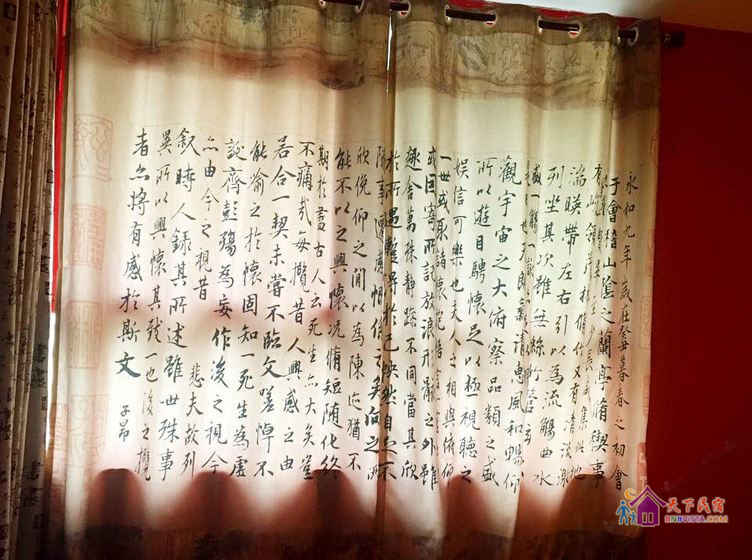 永和九年歲在癸暮春之初會
于會稽山陰之蘭亭脩禊事
湍暎帶左右引以為流觴曲水
列坐其次雖無絲竹管
盛一觴惠風和暢仰
觀宇宙之大俯察品類之盛
所以遊目騁懷足以極視聽之
娛信可樂也夫人之相與俯仰
一世或取諸懷抱
或因寄所託放浪形骸之外雖
趣舍萬殊靜躁不同當其欣
於所遇蹔得於己怏然自足不
隨事遷感慨係之矣向之所
欣俛仰之閒以為陳迹猶不
能不以之興懷況脩短隨化終
期於盡古人云死生亦大矣豈
不痛哉每攬昔人興感之由
若合一契未嘗不臨文嗟悼不
能喻之於懷固知一死生為虛
誕齊彭殤為妄作後之視今
亦由今之視昔 悲夫故列
敘時人錄其所述雖世殊事
異所以興懷其致一也後之攬
者亦將有感於斯文 子昂
天下民宿